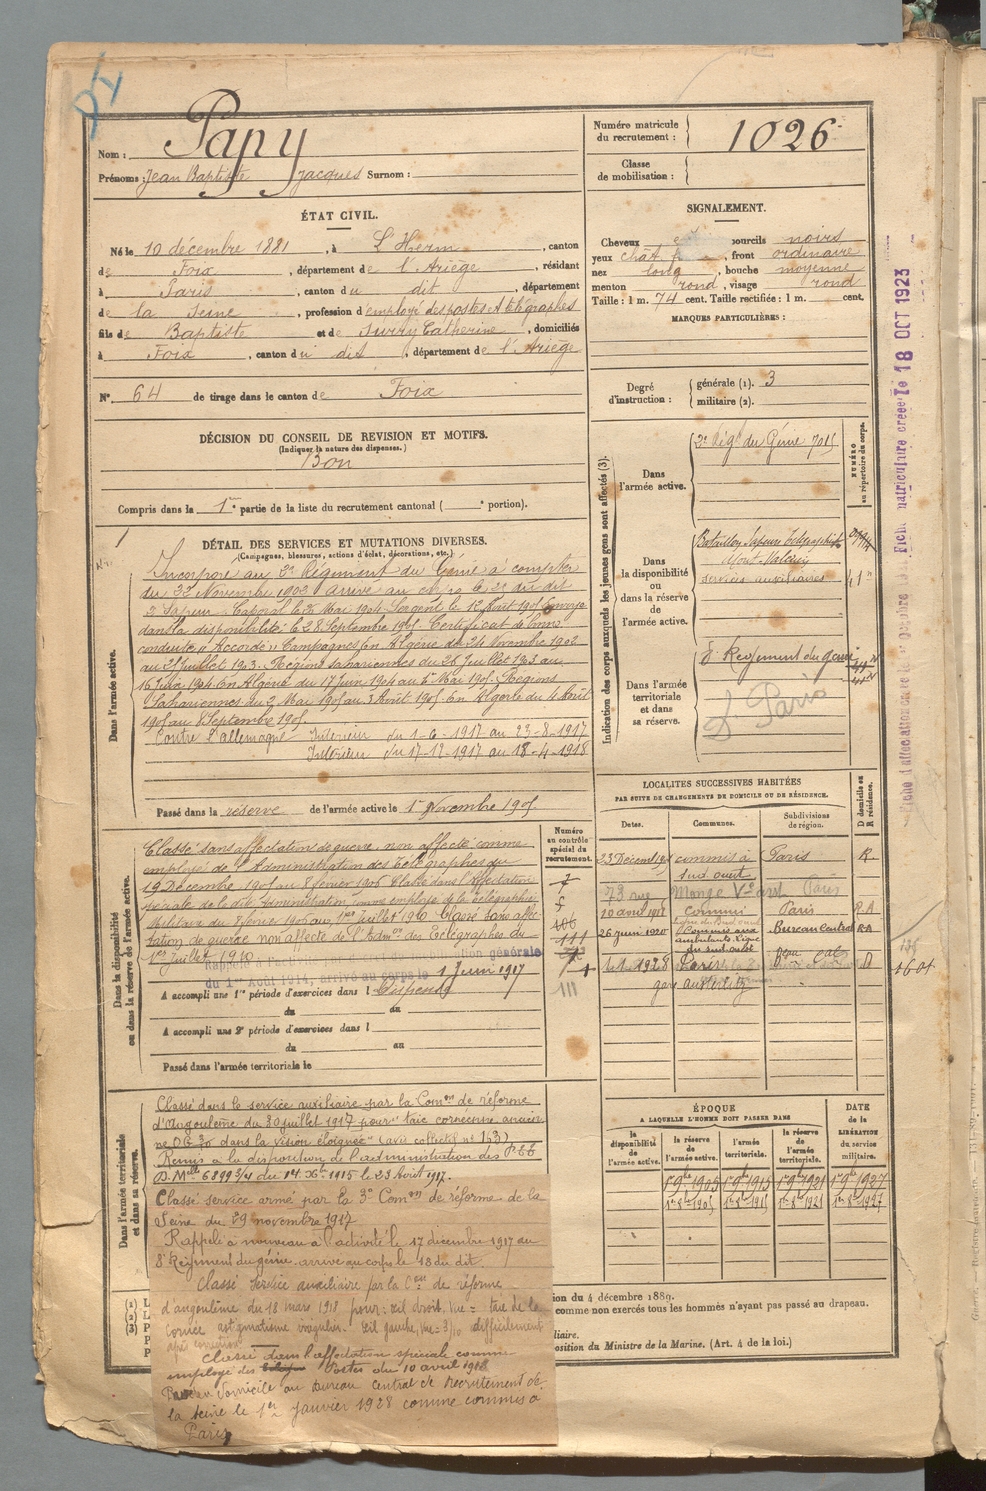 Nom : Papy
Prénoms : Jean Baptiste Jacques Surnom :
Numéro matricule du recrutement : 1026
Classe de mobilisation :
ÉTAT CIVIL.
Né le 10 décembre 1881, à L'Herm, canton
de Foix, département de l'Ariège, résidant
à Paris, canton du dit, département
de la Seine, profession d'employé des postes et télégraphes
fils de Baptiste et de Catherine, domiciliés
à Foix, canton du dit, département de l'Ariège
N° 64 de tirage dans le canton de Foix
SIGNALEMENT.
Cheveux sourcils noirs
yeux chât, front ordinaire
nez long, bouche moyenne
menton rond, visage rond
Taille : 1 m. 74 cent. Taille rectifiée : 1 m. cent.
MARQUES PARTICULIÈRES :
Degré d'instruction : générale (1). 3
militaire (2).
DÉCISION DU CONSEIL DE REVISION ET MOTIFS.
(Indiquer la nature des dispenses.)
Bon
Compris dans la 1re partie de la liste du recrutement cantonal ( e portion).
DÉTAIL DES SERVICES ET MUTATIONS DIVERSES.
(Campagnes, blessures, actions d'éclat, décorations, etc.)
Dans l'armée active.
Incorporé au 2e Régiment du Génie à compter
du 22 Novembre 1902 arrivé au corps le 2e du dit
2e Sapeur Caporal le 2 Mai 1904 Sergent le 12 Août 1905 Envoyé
dans la disponibilité le 28 Septembre 1905. Certificat de bonne
conduite "Accordé" Campagnes En Algérie du 24 Novembre 1902
au 25 Juillet 1903. Régions sahariennes du 26 Juillet 1903 au
16 Juin 1904 En Algérie du 17 Juin 1904 au 1er Mai 1905. Régions
Sahariennes du 2 Mai 1905 au 3 Août 1905. En Algérie du 4 Août
1905 au Septembre 1905.
Contre l'allemagne Intérieur du 1-6-1917 au 23-8-1917
Intérieur du 17-12-1917 au 18-4-1918
Passé dans la réserve de l'armée active le 1er Novembre 1905.
Indication des corps auxquels les jeunes gens sont affectés (3).
NUMÉRO au répertoire du corps.
Dans l'armée active.
2e Rég du Génie 7015
Dans la disponibilité ou dans la réserve de l'armée active.
Bataillon Sapeurs télégraphistes
Mont-Valérien
services auxiliaires
Dans l'armée territoriale et dans sa réserve.
8e Régiment du génie
S. Paris
LOCALITÉS SUCCESSIVES HABITÉES
PAR SUITE DE CHANGEMENTS DE DOMICILE OU DE RÉSIDENCE.
Dates. Communes. Subdivisions de région. D domicile ou R résidence.
23 Décemb 1905 commis à Paris R.
sud ouest
73 rue Monge Ve arrt Paris
20 aout 1918 Commis Paris R.A
26 juin 1920 Commis aux Bureau Central R.A
ambulants Ligne
du sud ouest
1.1.1928 Paris D
gare austerlitz
1601
Dans la disponibilité ou dans la réserve de l'armée active.
Numéro au contrôle spécial du recrutement.
Classé sans affectation de guerre, non affecté comme
employé de l'Administration des Télégraphes du
19 Décembre 1905 au 8 février 1906 Classé dans l'affectation
spéciale de la dite Administration, comme employé de la télégraphie
Militaire du 8 février 1906 au 1er Juillet 1910 Classé sans affec-
tation de guerre non affecté de l'Admon des Télégraphes du
1er Juillet 1910
Rappelé à l'activité mobilisation générale
du 1er août 1914, arrivé au corps le 1 Juin 1917
A accompli une 1re période d'exercices dans l Dispensé
du au
A accompli une 2e période d'exercices dans l
du au
Passé dans l'armée territoriale le
111
Dans l'armée territoriale et dans sa réserve.
Classé dans le service auxiliaire par la Comon de réforme
d'Angoulême du 30 juillet 1917 pour "taie cornéenne ancien-
ne OG 3/10 dans la vision éloignée" (avis collectif n° 163)
Remis à la disposition de l'administration des P&T
D. Mlle 6899 3/4 du 14 Xbre 1915 le 23 Août 1917.
Classé service armé par la 3e Comon de réforme de la
Seine du 29 novembre 1917
Rappelé à nouveau à l'activité le 17 décembre 1917 au
8e Régiment du génie. arrivé au corps le 18 du dit.
Classé service auxiliaire par la Con de réforme
d'angoulême du 18 mars 1918 pour : œil droit, vue = taie de la
Cornée astigmatisme irrégulier. œil gauche, vue = 3/10 difficilement
après correction
Classé dans l'affectation spéciale comme
employé des Postes du 10 avril 1918
Passé au domicile au bureau central de recrutement de
la Seine le 1er janvier 1928 comme commis à
Paris
ÉPOQUE
A LAQUELLE L'HOMME DOIT PASSER DANS
la disponibilité de l'armée active. la réserve de l'armée active. l'armée territoriale. la réserve de l'armée territoriale.
DATE de la LIBÉRATION du service militaire.
1er 9bre 1905 1er 9bre 1915 1er 9bre 1921 1er 9bre 1927
1er-8-1905 1er-8-1915 1er-8-1921 1er-8-1927
ion du 4 décembre 1889.
comme non exercés tous les hommes n'ayant pas passé au drapeau.
iliaire.
osition du Ministre de la Marine. (Art. 4 de la loi.)
Fiche matriculaire créée le 18 OCT 1923